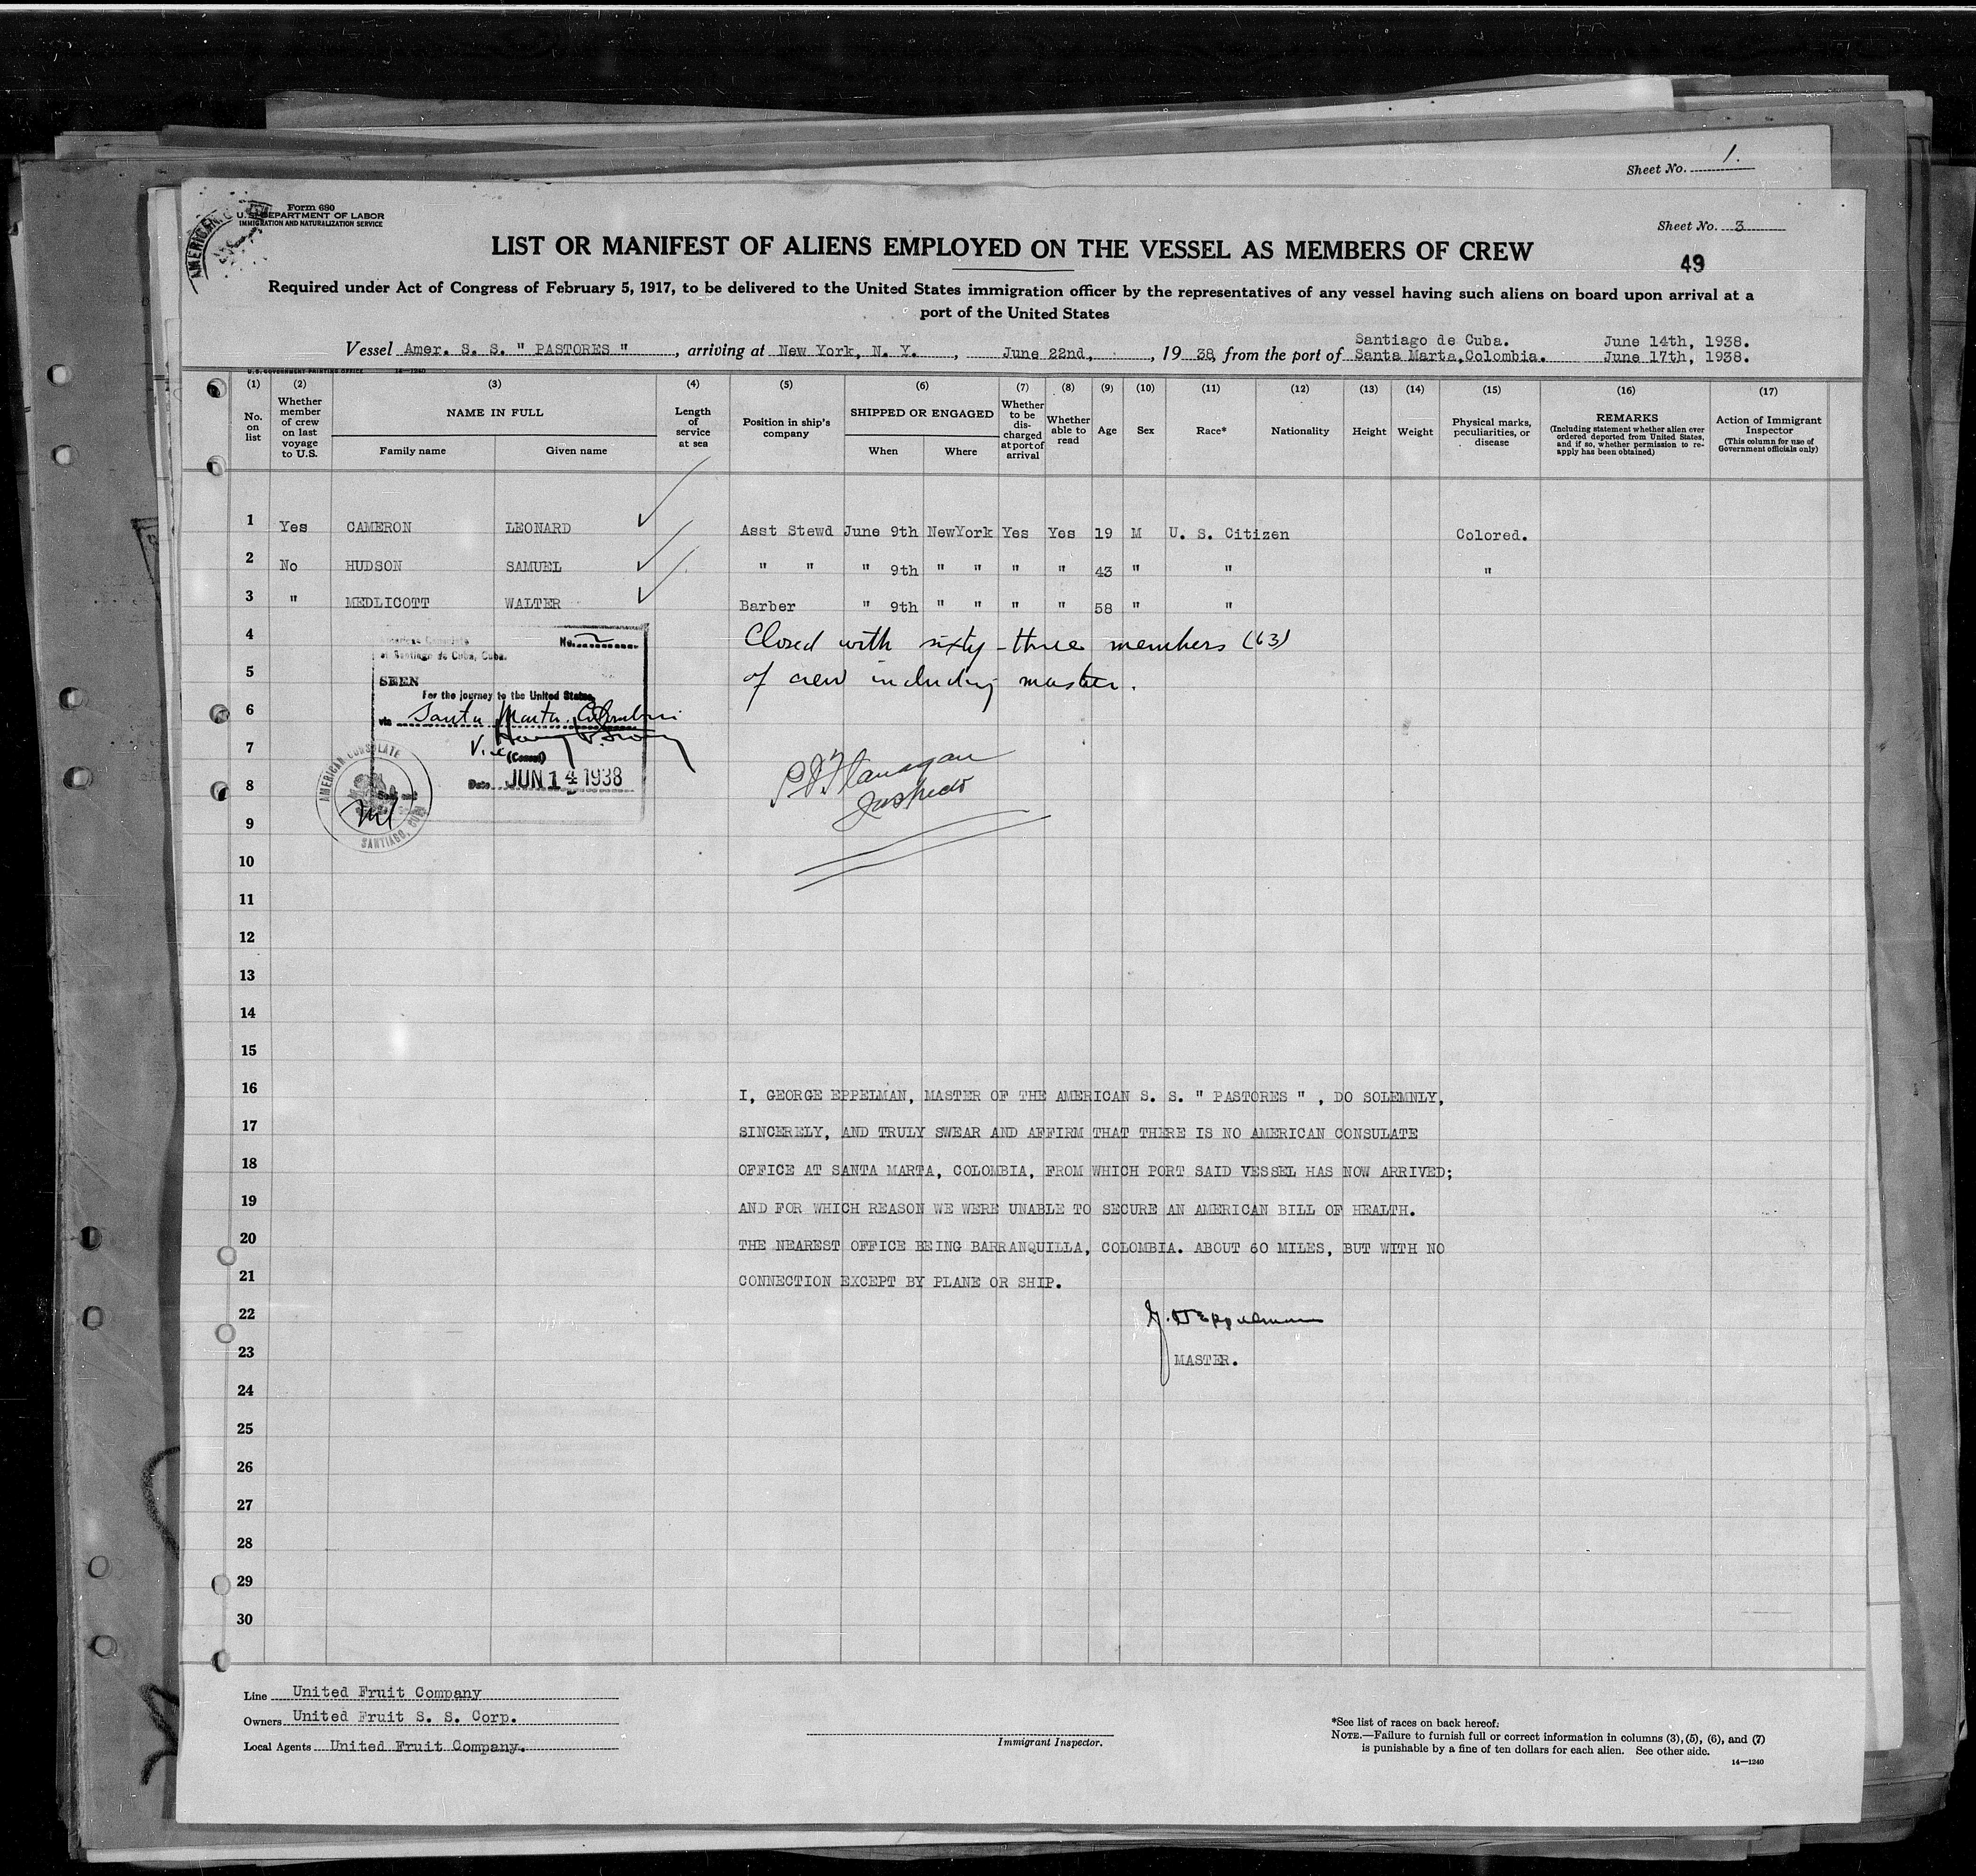 Sheet No. 1.
Form 680
U. S. DEPARTMENT OF LABOR
IMMIGRATION AND NATURALIZATION SERVICE
AMERICAN
Sheet No. 3
LIST OR MANIFEST OF ALIENS EMPLOYED ON THE VESSEL AS MEMBERS OF CREW
49
Required under Act of Congress of February 5, 1917, to be delivered to the United States immigration officer by the representatives of any vessel having such aliens on board upon arrival at a
port of the United States
Santiago de Cuba. June 14th, 1938.
Vessel Amer. S. S. " PASTORES ", arriving at New York, N. Y., June 22nd, , 19 38, from the port of Santa Marta, Colombia. June 17th, 1938.
U. S. GOVERNMENT PRINTING OFFICE 14—1240
(1) (2) (3) (4) (5) (6) (7) (8) (9) (10) (11) (12) (13) (14) (15) (16) (17)
No. on list
Whether member of crew on last voyage to U.S.
NAME IN FULL
Family name Given name
Length of service at sea
Position in ship's company
SHIPPED OR ENGAGED
When Where
Whether to be discharged at port of arrival
Whether able to read
Age Sex Race* Nationality Height Weight
Physical marks, peculiarities, or disease
REMARKS
(Including statement whether alien ever ordered deported from United States, and if so, whether permission to re-apply has been obtained)
Action of Immigrant Inspector
(This column for use of Government officials only)
1 Yes CAMERON LEONARD Asst Stewd June 9th NewYork Yes Yes 19 M U. S. Citizen Colored.
2 No HUDSON SAMUEL " " " 9th " " " " 43 " " "
3 " MEDLICOTT WALTER Barber " 9th " " " " 58 " "
4 Closed with sixty-three members (63)
5 of crew including master.
6
7
8
9
10
11
12
13
14
15
American Consulate
at Santiago de Cuba, Cuba.
No.
SEEN
For the journey to the United States
via Santa Marta, Colombia
Vice
(Consul)
Date JUN 14 1938
AMERICAN CONSULATE
SANTIAGO, CUBA
Flanagan
16 I, GEORGE EPPELMAN, MASTER OF THE AMERICAN S. S. " PASTORES " , DO SOLEMNLY,
17 SINCERELY, AND TRULY SWEAR AND AFFIRM THAT THERE IS NO AMERICAN CONSULATE
18 OFFICE AT SANTA MARTA, COLOMBIA, FROM WHICH PORT SAID VESSEL HAS NOW ARRIVED;
19 AND FOR WHICH REASON WE WERE UNABLE TO SECURE AN AMERICAN BILL OF HEALTH.
20 THE NEAREST OFFICE BEING BARRANQUILLA, COLOMBIA. ABOUT 60 MILES, BUT WITH NO
21 CONNECTION EXCEPT BY PLANE OR SHIP.
22 Eppelman
23 MASTER.
24
25
26
27
28
29
30
Line United Fruit Company
Owners United Fruit S. S. Corp.
Local Agents United Fruit Company.
Immigrant Inspector.
*See list of races on back hereof.
NOTE.—Failure to furnish full or correct information in columns (3), (5), (6), and (7)
is punishable by a fine of ten dollars for each alien. See other side.
14—1240